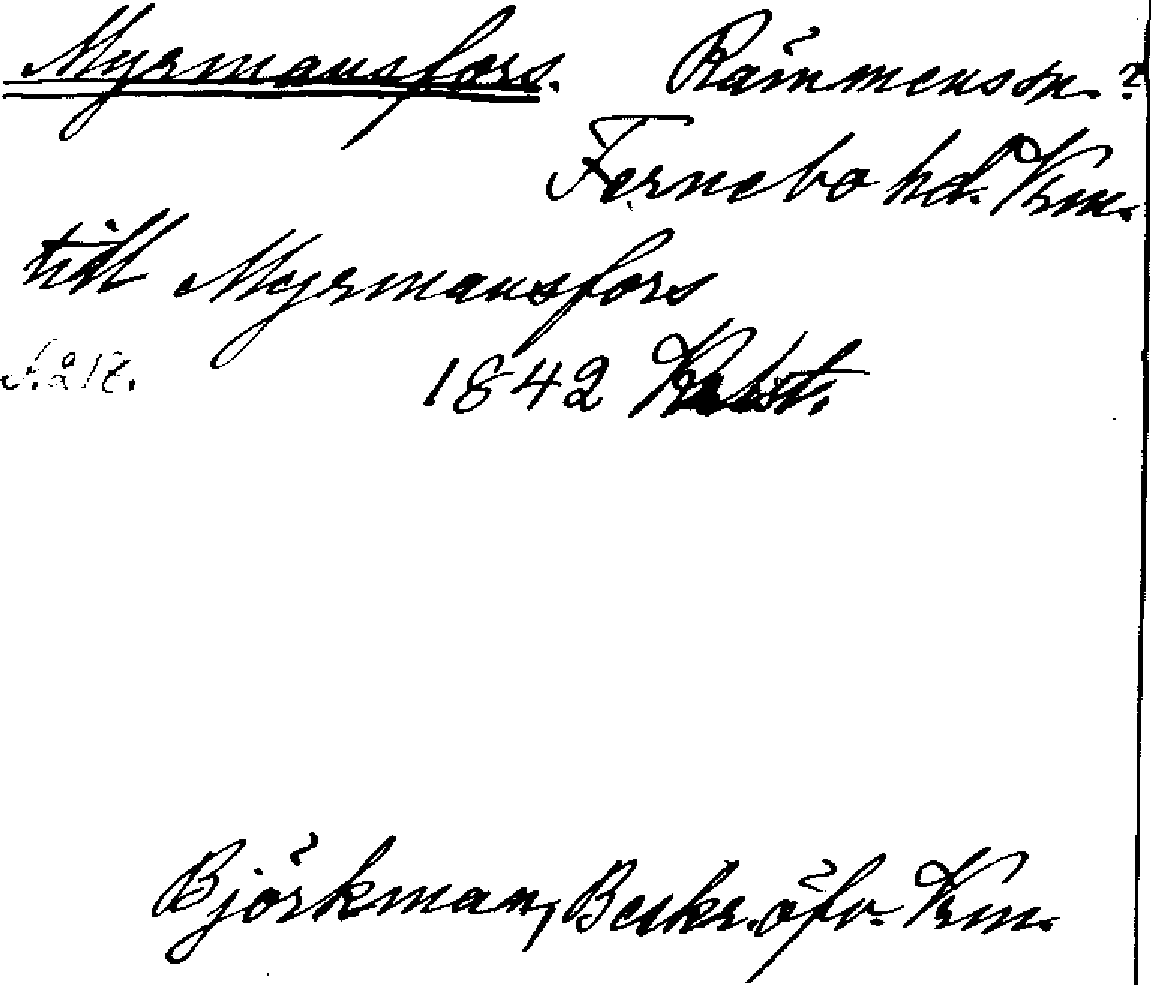 Myrmansfors. Rämmens sn.?
Fernebo hd. Vrm.
till Myrmansfors
S. 218.
1842
Björkman, Beskr. öfv. Vrm.